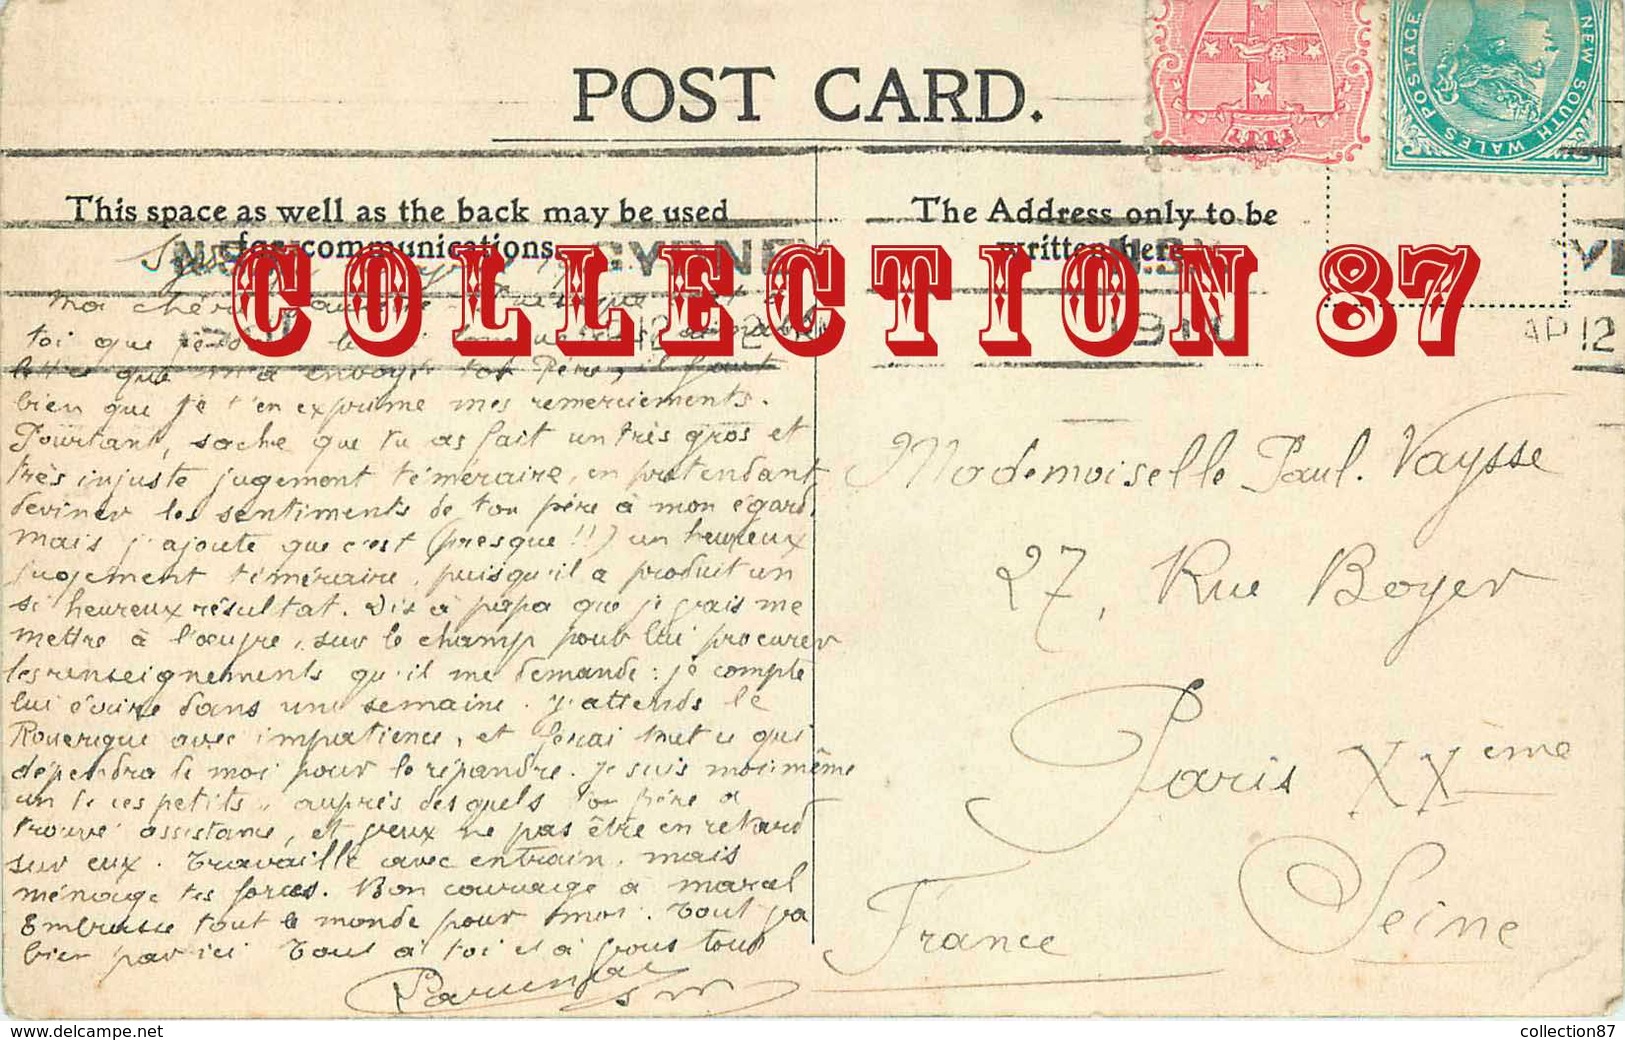 POST CARD.
NEW SOUTH WALES POSTAGE
This space as well as the back may be used
for communications.
The Address only to be
written here
SYDNEY
COLLECTION 87
AP 12
Ma chère
toi que
lettre que m'a envoyé ton Père, il faut
bien que je t'en exprime mes remerciements.
Pourtant, sache que tu as fait un très gros et
très injuste jugement téméraire, en prétendant
deviner les sentiments de ton père à mon égard,
mais j'ajoute que c'est (presque !!) un heureux
jugement téméraire, puisqu'il a produit un
si heureux résultat. Dis à papa que je vais me
mettre à l'œuvre, sur le champ pour lui procurer
les renseignements qu'il me demande : je compte
lui écrire dans une semaine. J'attends le
Rouergue avec impatience, et ferai tout ce qui
dépendra de moi pour le répandre. Je suis moi même
un de ces petits, auprès desquels ton père a
trouvé assistance, et veux ne pas être en retard
sur eux. Travaille avec entrain, mais
ménage tes forces. Bon courage à Marcel
Embrasse tout le monde pour moi. Tout va
bien par ici Tout à toi et à vous tous
Mademoiselle Paul. Vaysse
27, Rue Boyer
Paris XXème
Seine
France
www.delcampe.net
collection87